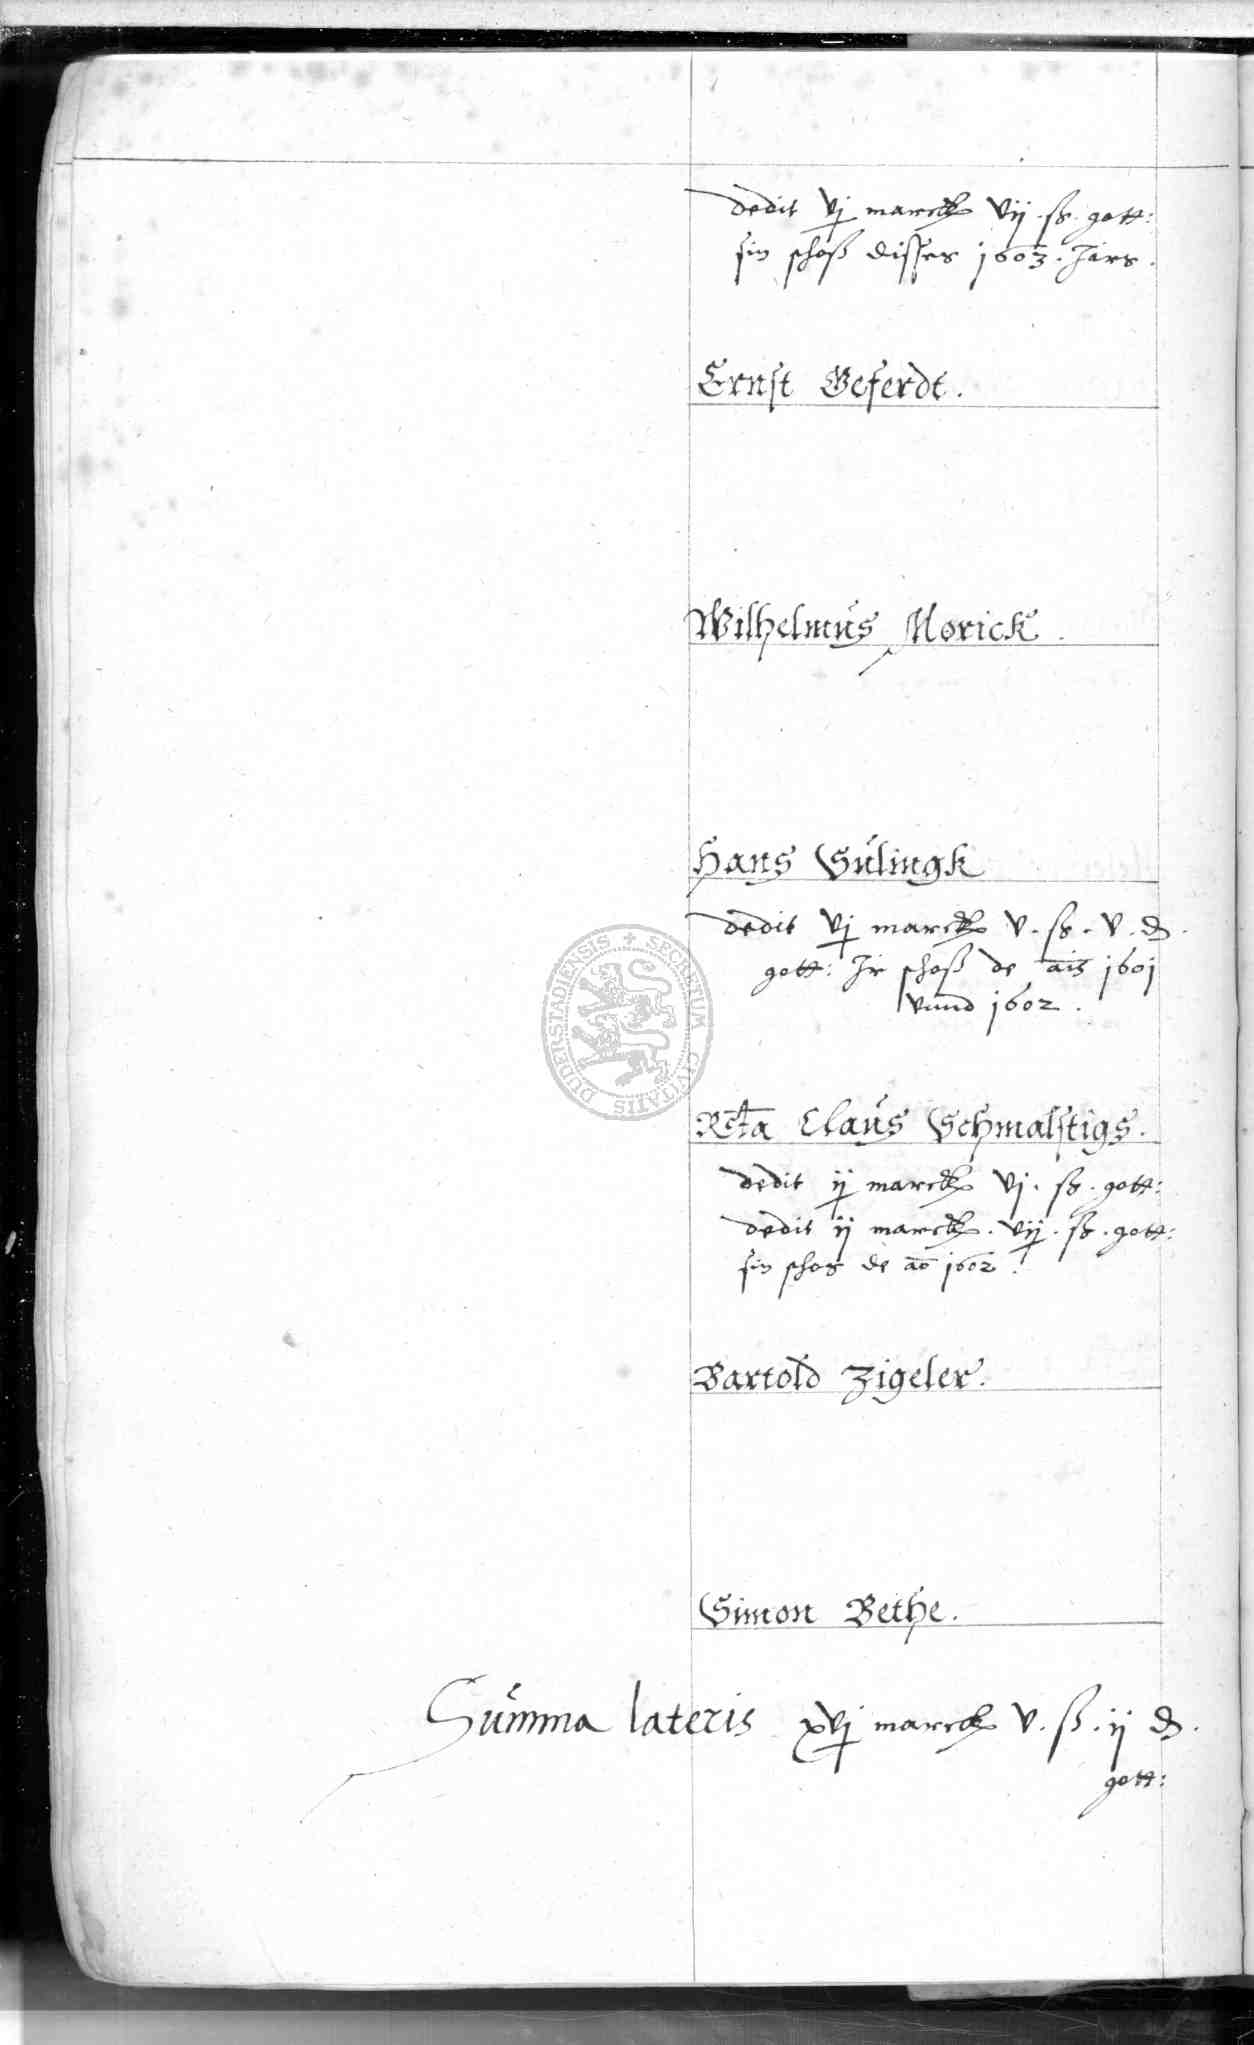 dedit vj marck vij . ß . gott:
sin schoß disses 1603 . Jars .
Ernst Geferdt .
Wilhelmus Morick .
Hans Sulingk
dedit vj marck v . ß . v . ₰ .
gott: Jr schoß de ais 1601
vnnd 1602 .
Rcta Claus Schmalstigs .
dedit ij marck vj . ß . gott:
dedit ij marck . vij . ß . gott:
sin schos de ao 1602 .
Bartold Zigeler .
Simon Bethe .
Summa lateris xvj marck v . ß . ij ₰ .
gott:
SECRETUM CIVITATIS DUDERSTADIENSIS